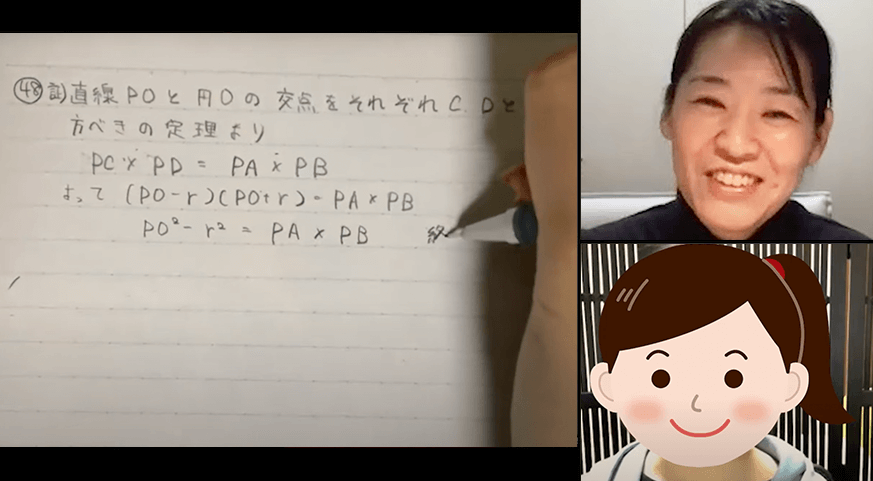 ㊽ 証)直線POと円Oの交点をそれぞれC.Dと
方べきの定理より
PC×PD = PA×PB
よって (PO-r)(PO+r)=PA×PB
PO²-r² = PA×PB 終